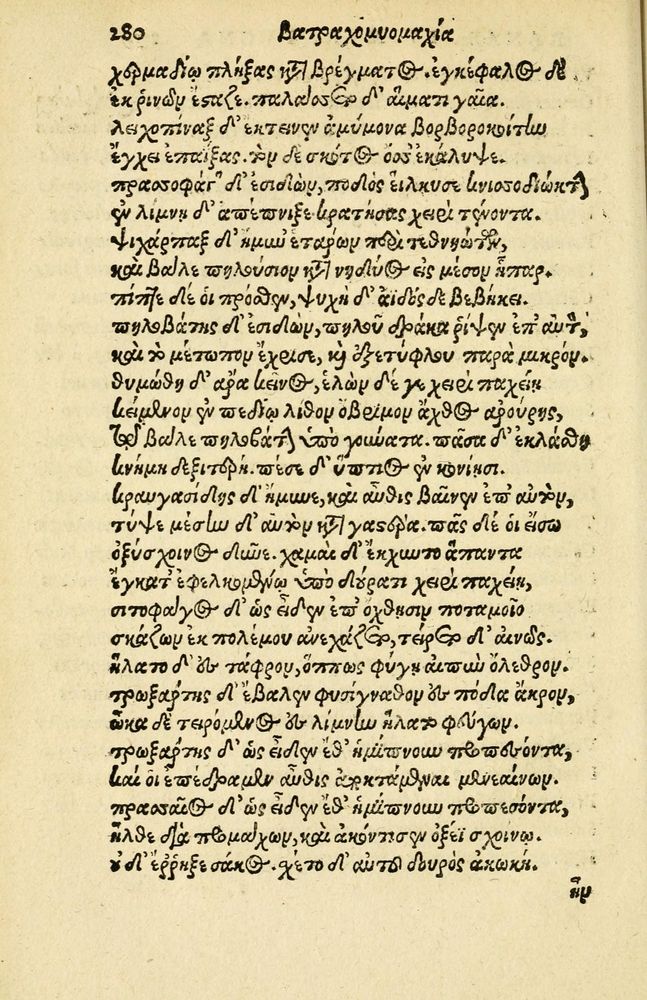 280 Βατραχομυομαχία
χερμαδίῳ πλήξας κτ̀ βρέγματος. ἐγκέφαλος δὲ
ἐκ ῥινῶν ἔσαζε. παλάσσετο δ' αἵματι γαῖα.
λειχοπίναξ δ' ἔκτεινεν ἀμύμονα βορβοροκοίτην
ἔγχει ἐπαΐξας. τὸν δὲ σκότος ὄσσ' ἐκάλυψε.
πρασσοφάγος δ' ἐσιδὼν, ποδὸς εἵλκυσε κνισσοδιώκτην
ἐν λίμνῃ δ' ἀπέπνιξε κρατήσας χειρὶ τένοντα.
ψιχάρπαξ δ' ἤμυν' ἑτάρων περὶ τεθνηώτων,
καὶ βάλε πηλούσιον κτ̀ νηδύος εἰς μέσον ἧπαρ.
πίπτε δέ οἱ πρόσθεν, ψυχὴ δ' ἄϊδός δε βεβήκει.
πηλοβάτης δ' ἐσιδὼν, πηλοῦ δράκα ῥίψεν ἐπ' αὐτὸν,
καὶ τὸ μέτωπον ἔχρισε, καὶ ἐξετύφλου παρὰ μικρόν.
θυμώθη δ' ἄρα κεῖνος, ἑλὼν δέ γε χειρὶ παχείῃ
κείμενον ἐν πεδίῳ λίθον ὄβριμον ἄχθος ἀρούρης,
τῷ βάλε πηλοβάτην ὑπὸ γούνατα. πᾶσα δ' ἐκλάσθη
κνήμη δεξιτερή. πέσε δ' ὕπτιος ἐν κονίῃσι.
κραυγασίδης δ' ἤμυνε, καὶ αὖθις βαῖνεν ἐπ' αὐτὸν,
τύψε μέσην δ' αὐτὸν κτ̀ γαστέρα. πᾶς δέ οἱ εἴσω
ὀξύσχοινος δῦνε. χαμαὶ δ' ἔκχυντο ἅπαντα
ἔγκατ' ἐφελκομένῳ ὑπὸ δούρατι χειρὶ παχείῃ,
σιτοφάγος δ' ὡς εἶδεν ἐπ' ὄχθῃσιν ποταμοῖο
σκάζων ἐκ πολέμου ἀνεχάζετο, τείρετο δ' αἰνῶς.
ἥλατο δ' ἐς τάφρον, ὅππως φύγῃ αἰπὺν ὄλεθρον.
τρωξάρτης δ' ἔβαλεν φυσίγναθον ἐς πόδα ἄκρον,
ὦκα δὲ τειρόμενος ἐς λίμνην ἥλατο φεύγων.
τρωξάρτης δ' ὡς εἶδεν ἔθ' ἡμίπνουν προπεσόντα,
καί οἱ ἐπέδραμεν αὖθις ἀποκτάμεναι μενεαίνων.
πρασσαῖος δ' ὡς εἶδεν ἔθ' ἡμίπνουν προπεσόντα,
ἦλθε διὰ προμάχων, καὶ ἀκόντισεν ὀξέϊ σχοίνῳ.
οὐ δ' ἔρρηξε σάκος. χέτο δ' αὐτοῦ δουρὸς ἀκωκή.
ἦν